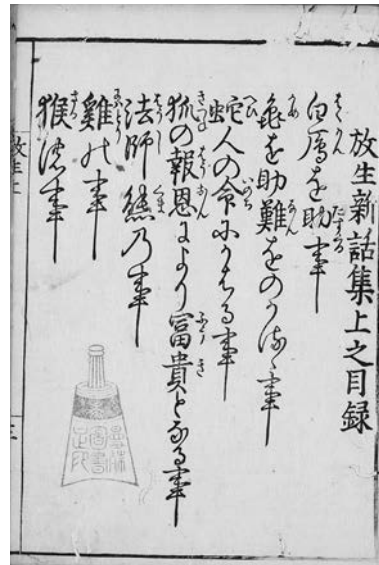 放生新話集上之目録
白鴈を助事
亀を助難をのかるゝ事
蛇人の命にかはる事
狐の報恩により富貴となる事
法師熊乃事
鶏の事
猴 事
放生上